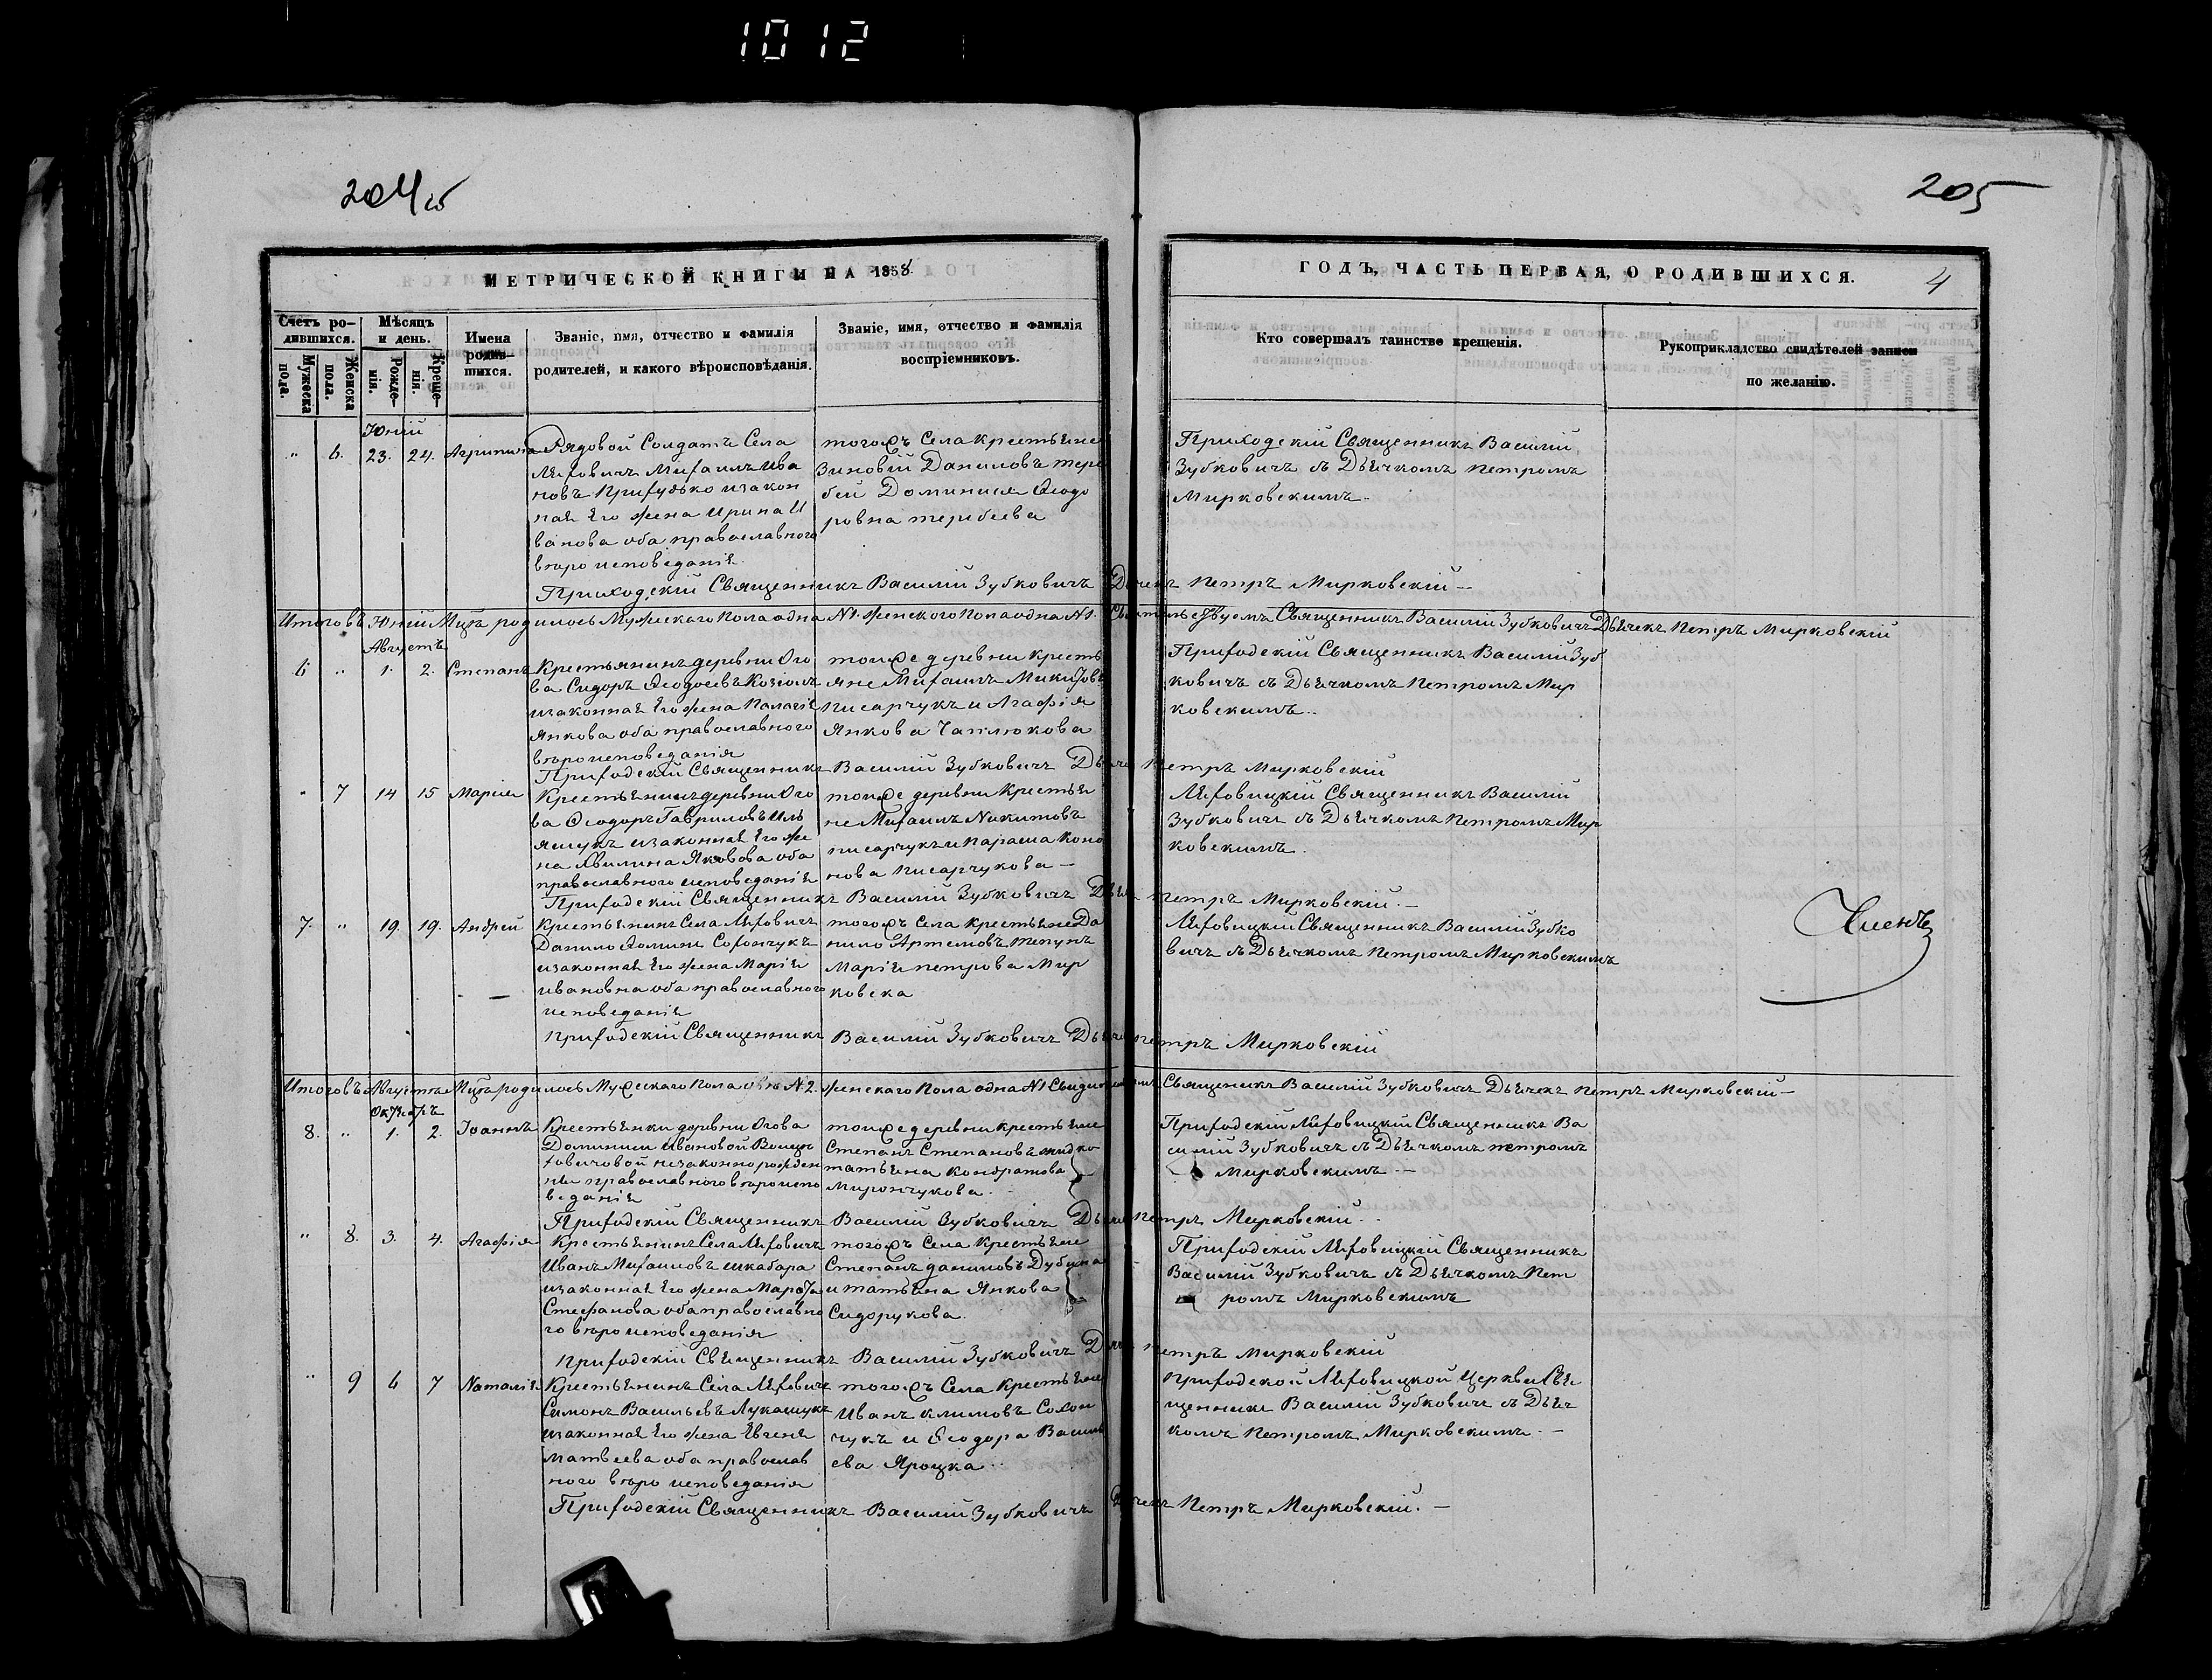 1012
204 об
205
МЕТРИЧЕСКОЙ КНИГИ НА 1858
ГОДЪ, ЧАСТЬ ПЕРВАЯ, О РОДИВШИХСЯ.
4
Счетъ ро-
дившихся.
Мужеска
пола.
Женска
пола.
Мѣсяцъ
и день.
Рожде-
нія.
Креще-
нія.
Имена
родив-
шихся.
Званіе, имя, отчество и фамилія
родителей, и какого вѣроисповѣданія.
Званіе, имя, отчество и фамилія
воспріемниковъ.
Кто совершалъ таинство крещенія.
Рукоприкладство свидѣтелей записи
по желанію.
Юній
" 6. 23. 24. Агрипина
Рядовой Солдатъ Села
Ляховичъ Михаилъ Ива
новъ Прихудько изакон
ная Его жена Ирина И
ванова оба православного
вѣроисповеданія.
тогожъ Села крестьяне
Зиновій Даниловъ тере
бей Доминися Ѳеодо
ровна теребеева
Приходскій Священникъ Василій
Зубковичъ съ Дьячкомъ Петромъ
Мирковскимъ.
Приходскій Священникъ Василій Зубковичъ Дячекъ Петръ Мирковскій
Итоговъ Юній Мцъ родилось Мужескаго Пола одна №1. Женского Пола одна №1. Священникъ Василій Зубковичъ Дьячекъ Петръ Мирковскій
Августъ
6 " 1. 2. Степанъ
Крестьянинъ деревни Ого
ва Сидоръ Ѳеодосевъ Козіолъ
изаконная Его жена Палагія
Янкова оба православного
вѣроисповеданія
тоиже деревни кресть
яне Михаилъ Микитовъ
Писарчукъ и Агафія
Янкова Чаплюкова
Приходскій Священникъ Василій Зуб
ковичъ съ Дьячкомъ Петромъ Мир
ковскимъ..
Приходскій Священникъ Василій Зубковичъ Дьячекъ Петръ Мирковскій
" 7 14 15 Марія
Крестьянинъ деревни Ого
ва Ѳеодоръ Гавриловъ Иль
яшукъ изаконная Его же
на Яковова оба
православного исповеданія
тоиже деревни Крестья
не Михаилъ Никитовъ
писарчукъ и Параша Коно
нова Писарчукова
Ляховицкій Священникъ Василій
Зубковичъ съ Дьячкомъ Петромъ Мир
ковскимъ.
Приходскій Священникъ Василій Зубковичъ Дьячекъ Петръ Мирковскій.
7. " 19. 19. Андрей
Крестьянинъ Села Ляховичъ
Данило Соfончукъ
изаконная Его жена Марія
ивановна оба православного
исповеданія
тогожъ Села крестьяне Да
нило Артемовъ
Марія петрова Мир
ковска
Ляховицкій Священникъ Василій Зубко
вичъ съ Дьячкомъ Петромъ Мирковскимъ
Приходскій Священникъ Василій Зубковичъ Дьячекъ Петръ Мирковскій
Итоговъ Августъ Мцъ родилось Мужескаго Пола №2. женскаго Пола одна №1 Священикъ Василій Зубковичъ Дьячекъ Петръ Мирковскій
Октябръ
8. " 1. 2. Іоаннъ
Крестьянки деревни Огова
Доминии Ивановой
незаконнорожден
православного вѣроиспо
веданія
тоиже деревни крестьяне
Степанъ Степановъ жидко
татьяна Кондратова
Мирончукова.
Приходскій Ляховицкій Священникъ Ва
силій Зубковичъ съ Дьячкомъ петромъ
Мирковскимъ
Приходскій Священникъ Василій Зубковичъ Дьячекъ Петръ Мирковскій.
" 8. 3. 4. Агафія
Крестьянинъ Села Ляховичъ
Иванъ Михаиловъ шкабара
изаконная Его жена Марѳа
Стефанова оба православно
го вѣроисповеданія
тогожъ Села крестьяне
Степанъ даниловъ Дубина
и татьяна Янкова
Сидорукова.
Приходскій Ляховицкій Священникъ
Василій Зубковичъ съ Дьячкомъ Пет
ромъ Мирковскимъ
Приходскій Священникъ Василій Зубковичъ Дьячекъ Петръ Мирковскій
" 9 6 7 Наталія
Крестьянинъ Села Ляховичъ
Симонъ Васильевъ Лукашукъ
изаконная Его жена Евгенія
матвеева оба православ
ного вѣроисповеданія
тогожъ Села Крестьяне
Иванъ климовъ Сохон
чукъ и Ѳеодора Василь
ева Яроцка..
приходской Ляховицкой Церкви Свя
щенникъ Василій Зубковичъ съ Дьяч
комъ Петромъ Мирковскимъ.
Приходскій Священникъ Василій Зубковичъ Дячекъ Петръ Мирковскій.
Членъ